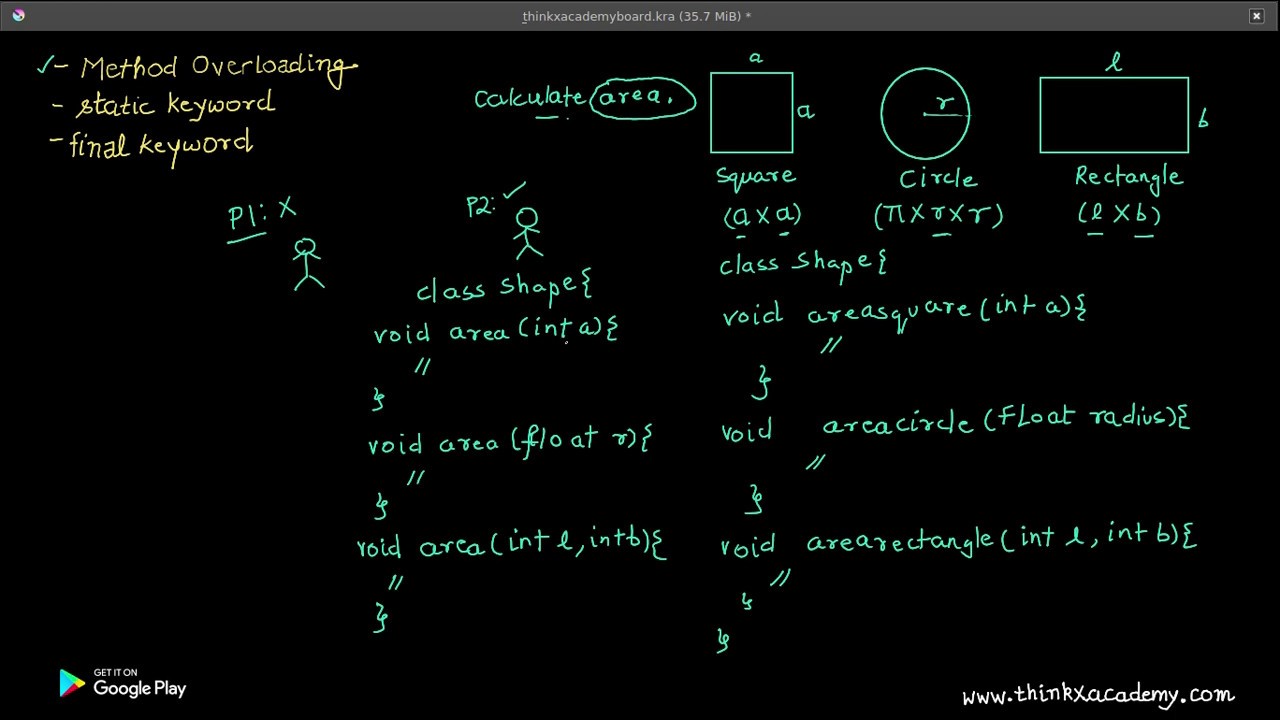 thinkxacademyboard.kra (35.7 MiB) *
✓ - Method Overloading
- static keyword
- final keyword
Calculate area.
a
a
Square
(a x a)
r
Circle
(π x r x r)
l
b
Rectangle
(l x b)
P1: X
P2: ✓
class Shape{
void area (int a){
//
}
void area (float r){
//
}
void area (int l, int b){
//
}
class Shape{
void areasquare (int a){
//
}
void areacircle (Float radius){
//
}
void arearectangle (int l, int b){
//
}
}
GET IT ON
Google Play
www.thinkxacademy.com